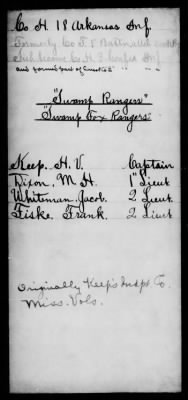 Co H. 18 Arkansas Inf.
Formerly Co
and formed part of
"Swamp Rangers"
"Swamp Fox Rangers"
Keep, H. V. Captain
Dixon, M H. 1" Lieut
Whiteman, Jacob. 2 Lieut.
Fiske, Frank. 2 Lieut
Originally Keep's Indpt. Co.
Miss. Vols.